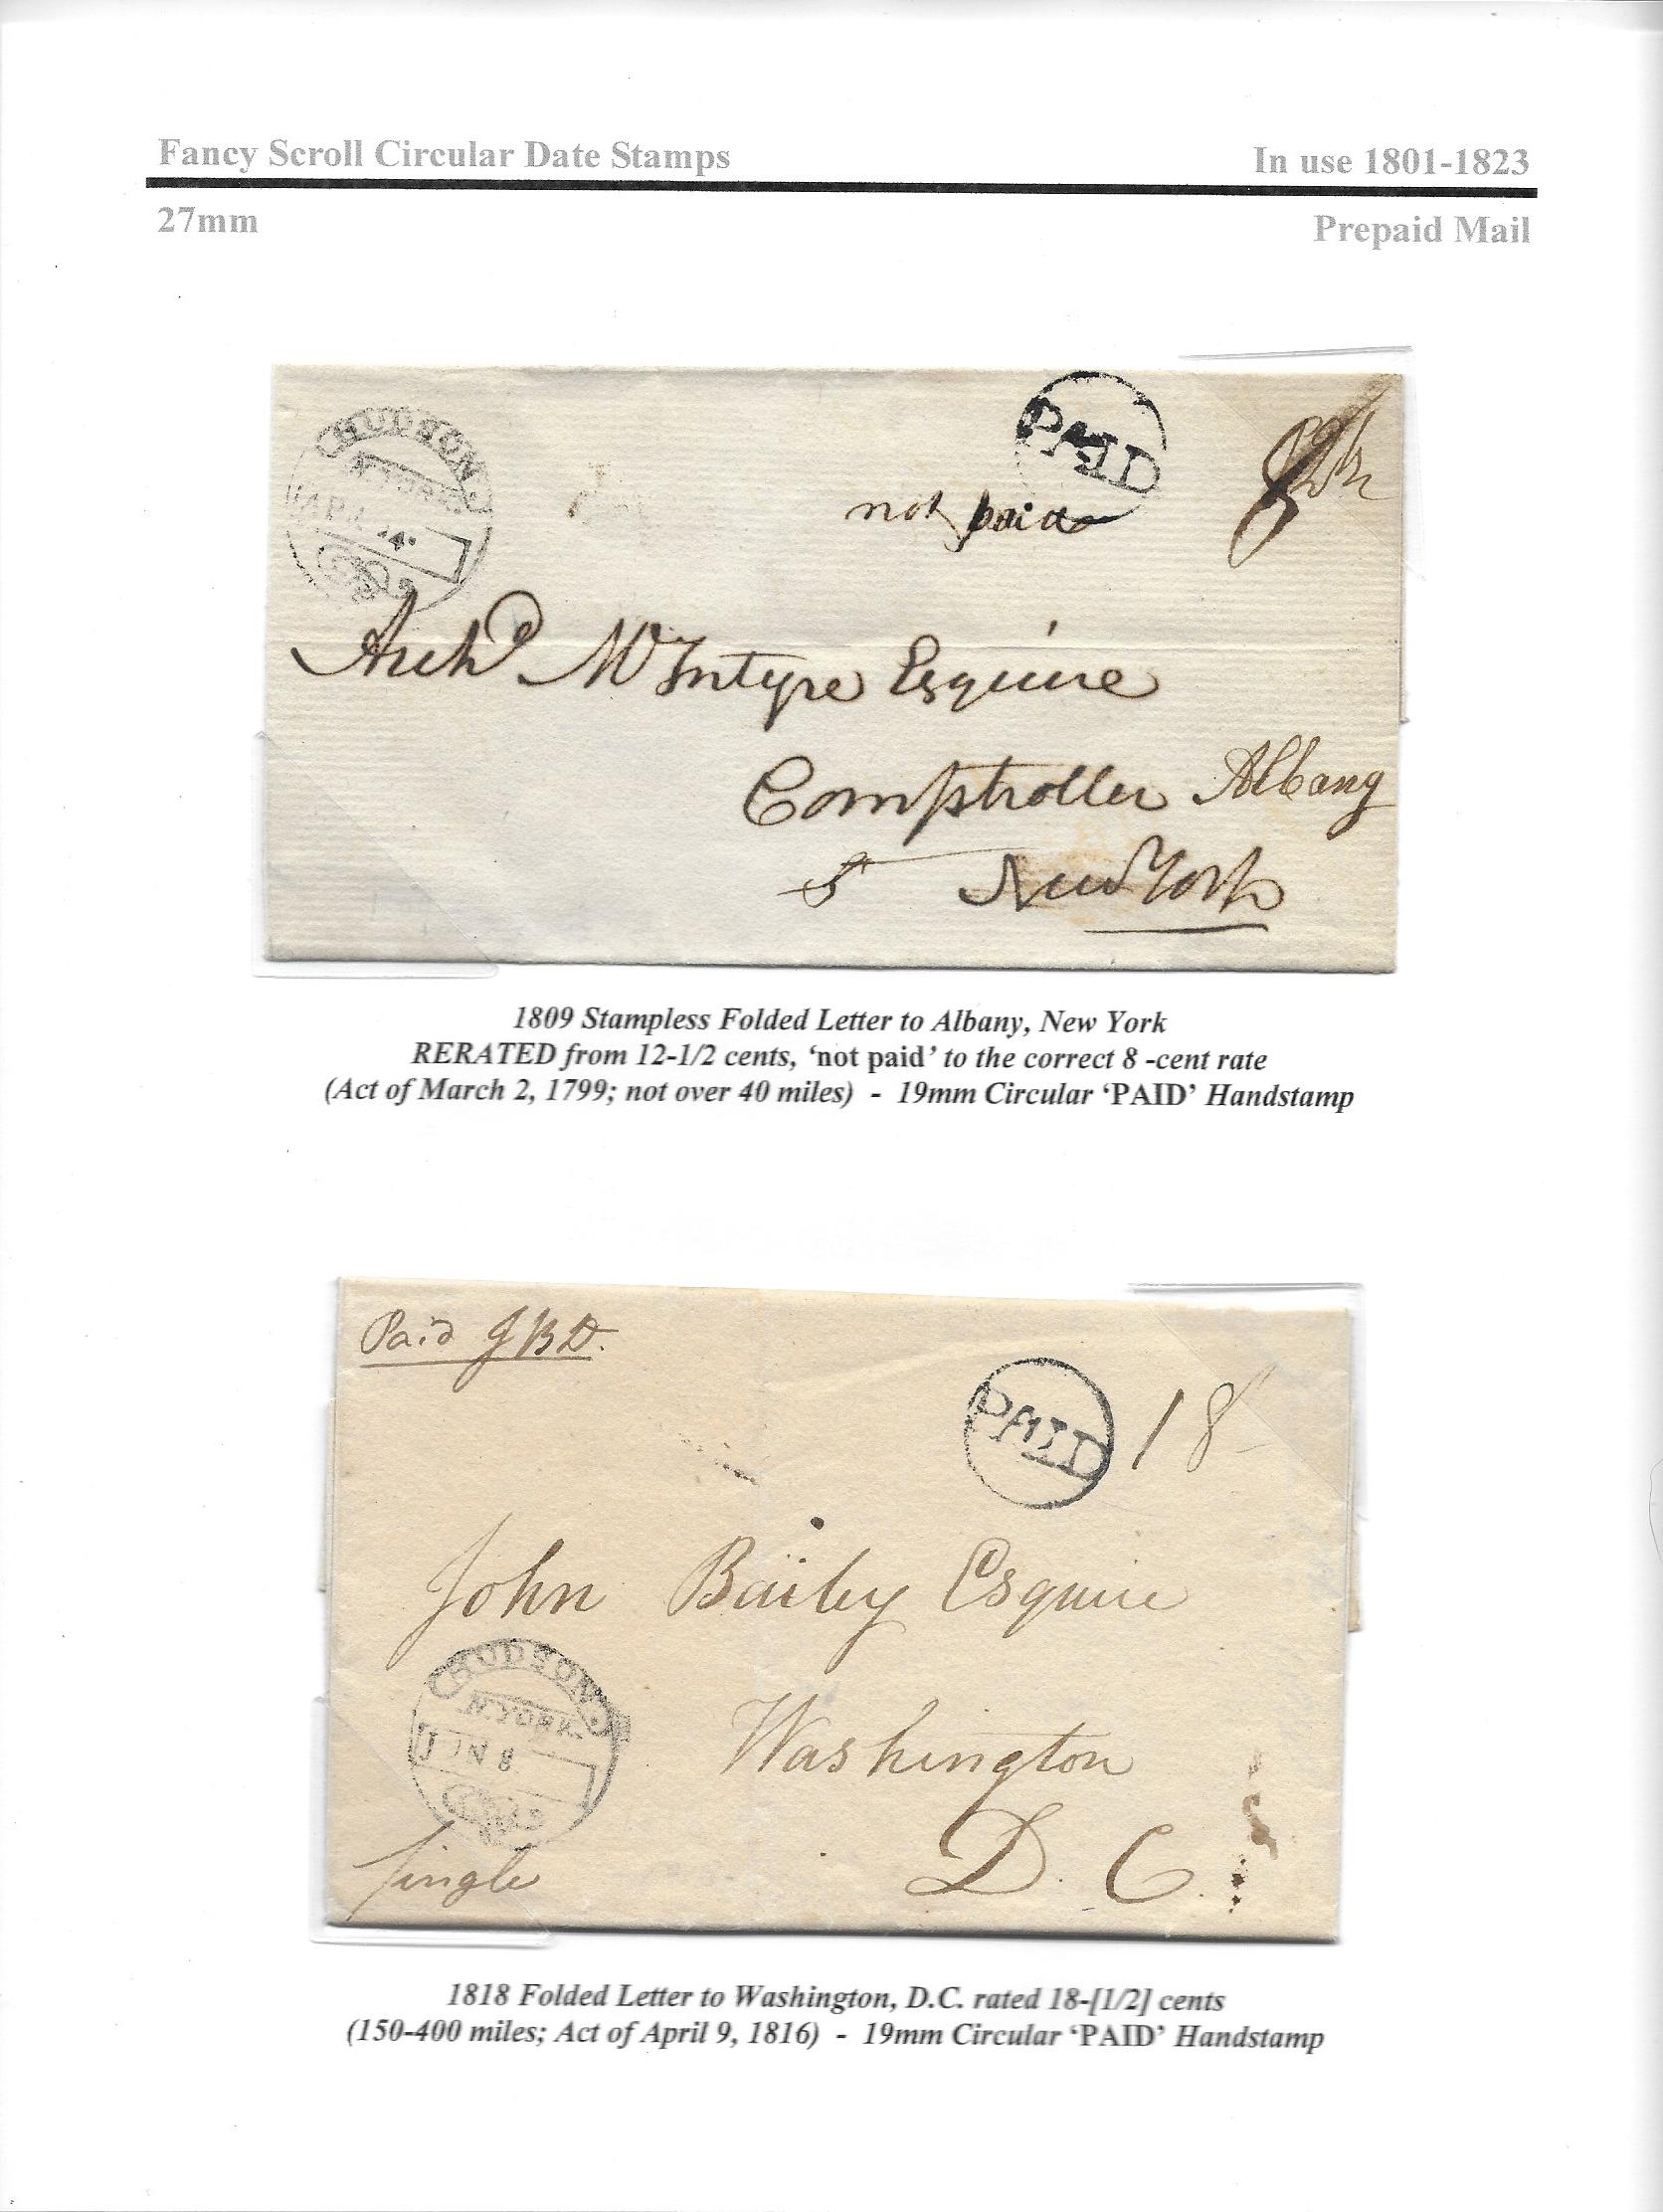 Fancy Scroll Circular Date Stamps
In use 1801-1823
27mm
Prepaid Mail
HUDSON
N.YORK.
APR 4
PAID
not paid
8
Archd McIntyre Esquire
Comptroller Albany
New York
1809 Stampless Folded Letter to Albany, New York
RERATED from 12-1/2 cents, ‘not paid’ to the correct 8 -cent rate
(Act of March 2, 1799; not over 40 miles) - 19mm Circular ‘PAID’ Handstamp
Paid J B D.
PAID
18
John Bailey Esquire
HUDSON
N.YORK.
JUN 8
Washington
D. C.
Single
1818 Folded Letter to Washington, D.C. rated 18-[1/2] cents
(150-400 miles; Act of April 9, 1816) - 19mm Circular ‘PAID’ Handstamp